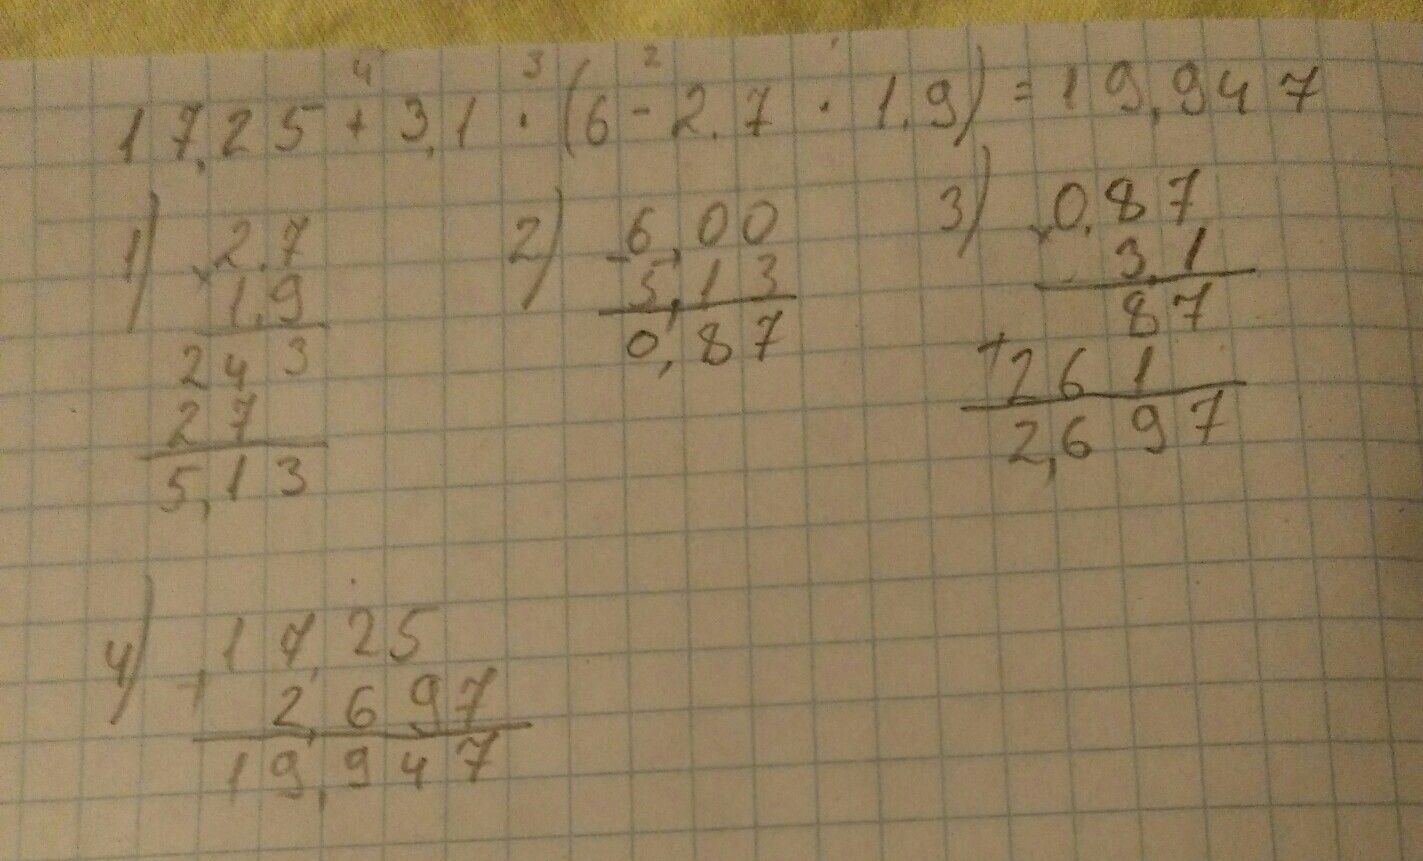 4 3 2 1
17,25 + 3,1 · (6 - 2,7 · 1,9) = 19,947
1) 2,7
× 1,9
243
27
5,13
2) - 6,00
5,13
0,87
3) × 0,87
3,1
87
+ 261
2,697
4) + 17,25
2,697
19,947